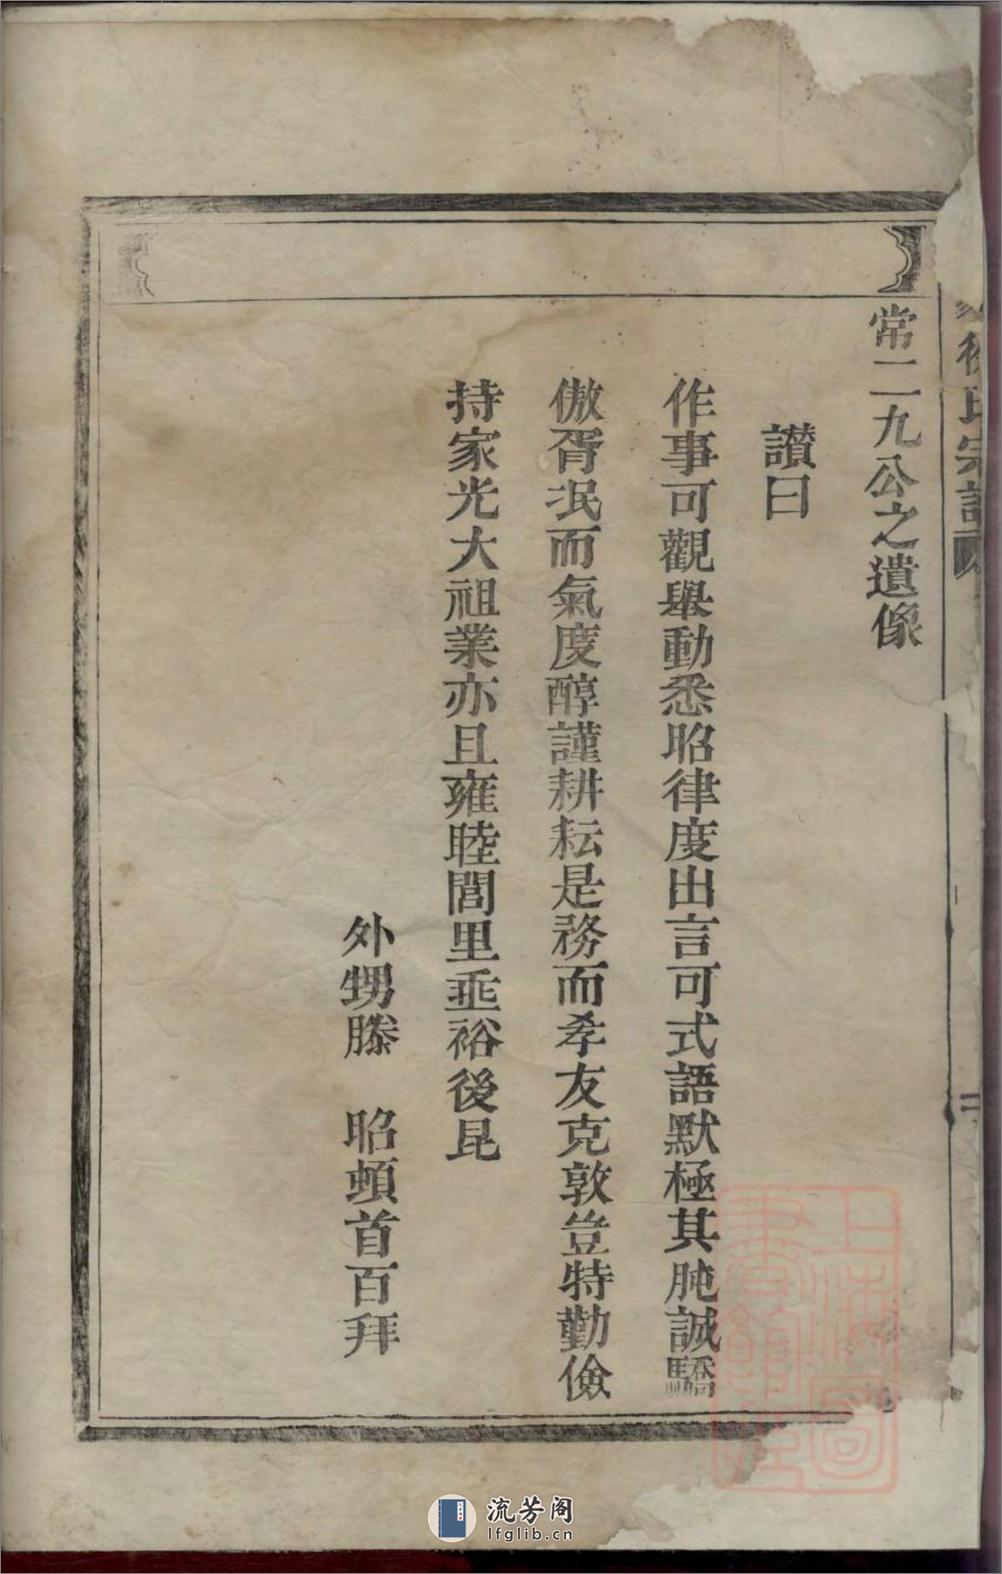 徐氏宗譜
常二九公之遺像
讃曰
作事可觀舉動悉昭律度出言可式語默極其肫誠驕
傲胥泯而氣度醇謹耕耘是務而孝友克敦豈特勤儉
持家光大祖業亦且雍睦閭里垂裕後昆
外甥滕　昭頓首百拜
上海圖書館藏
流芳阁
lfglib.cn